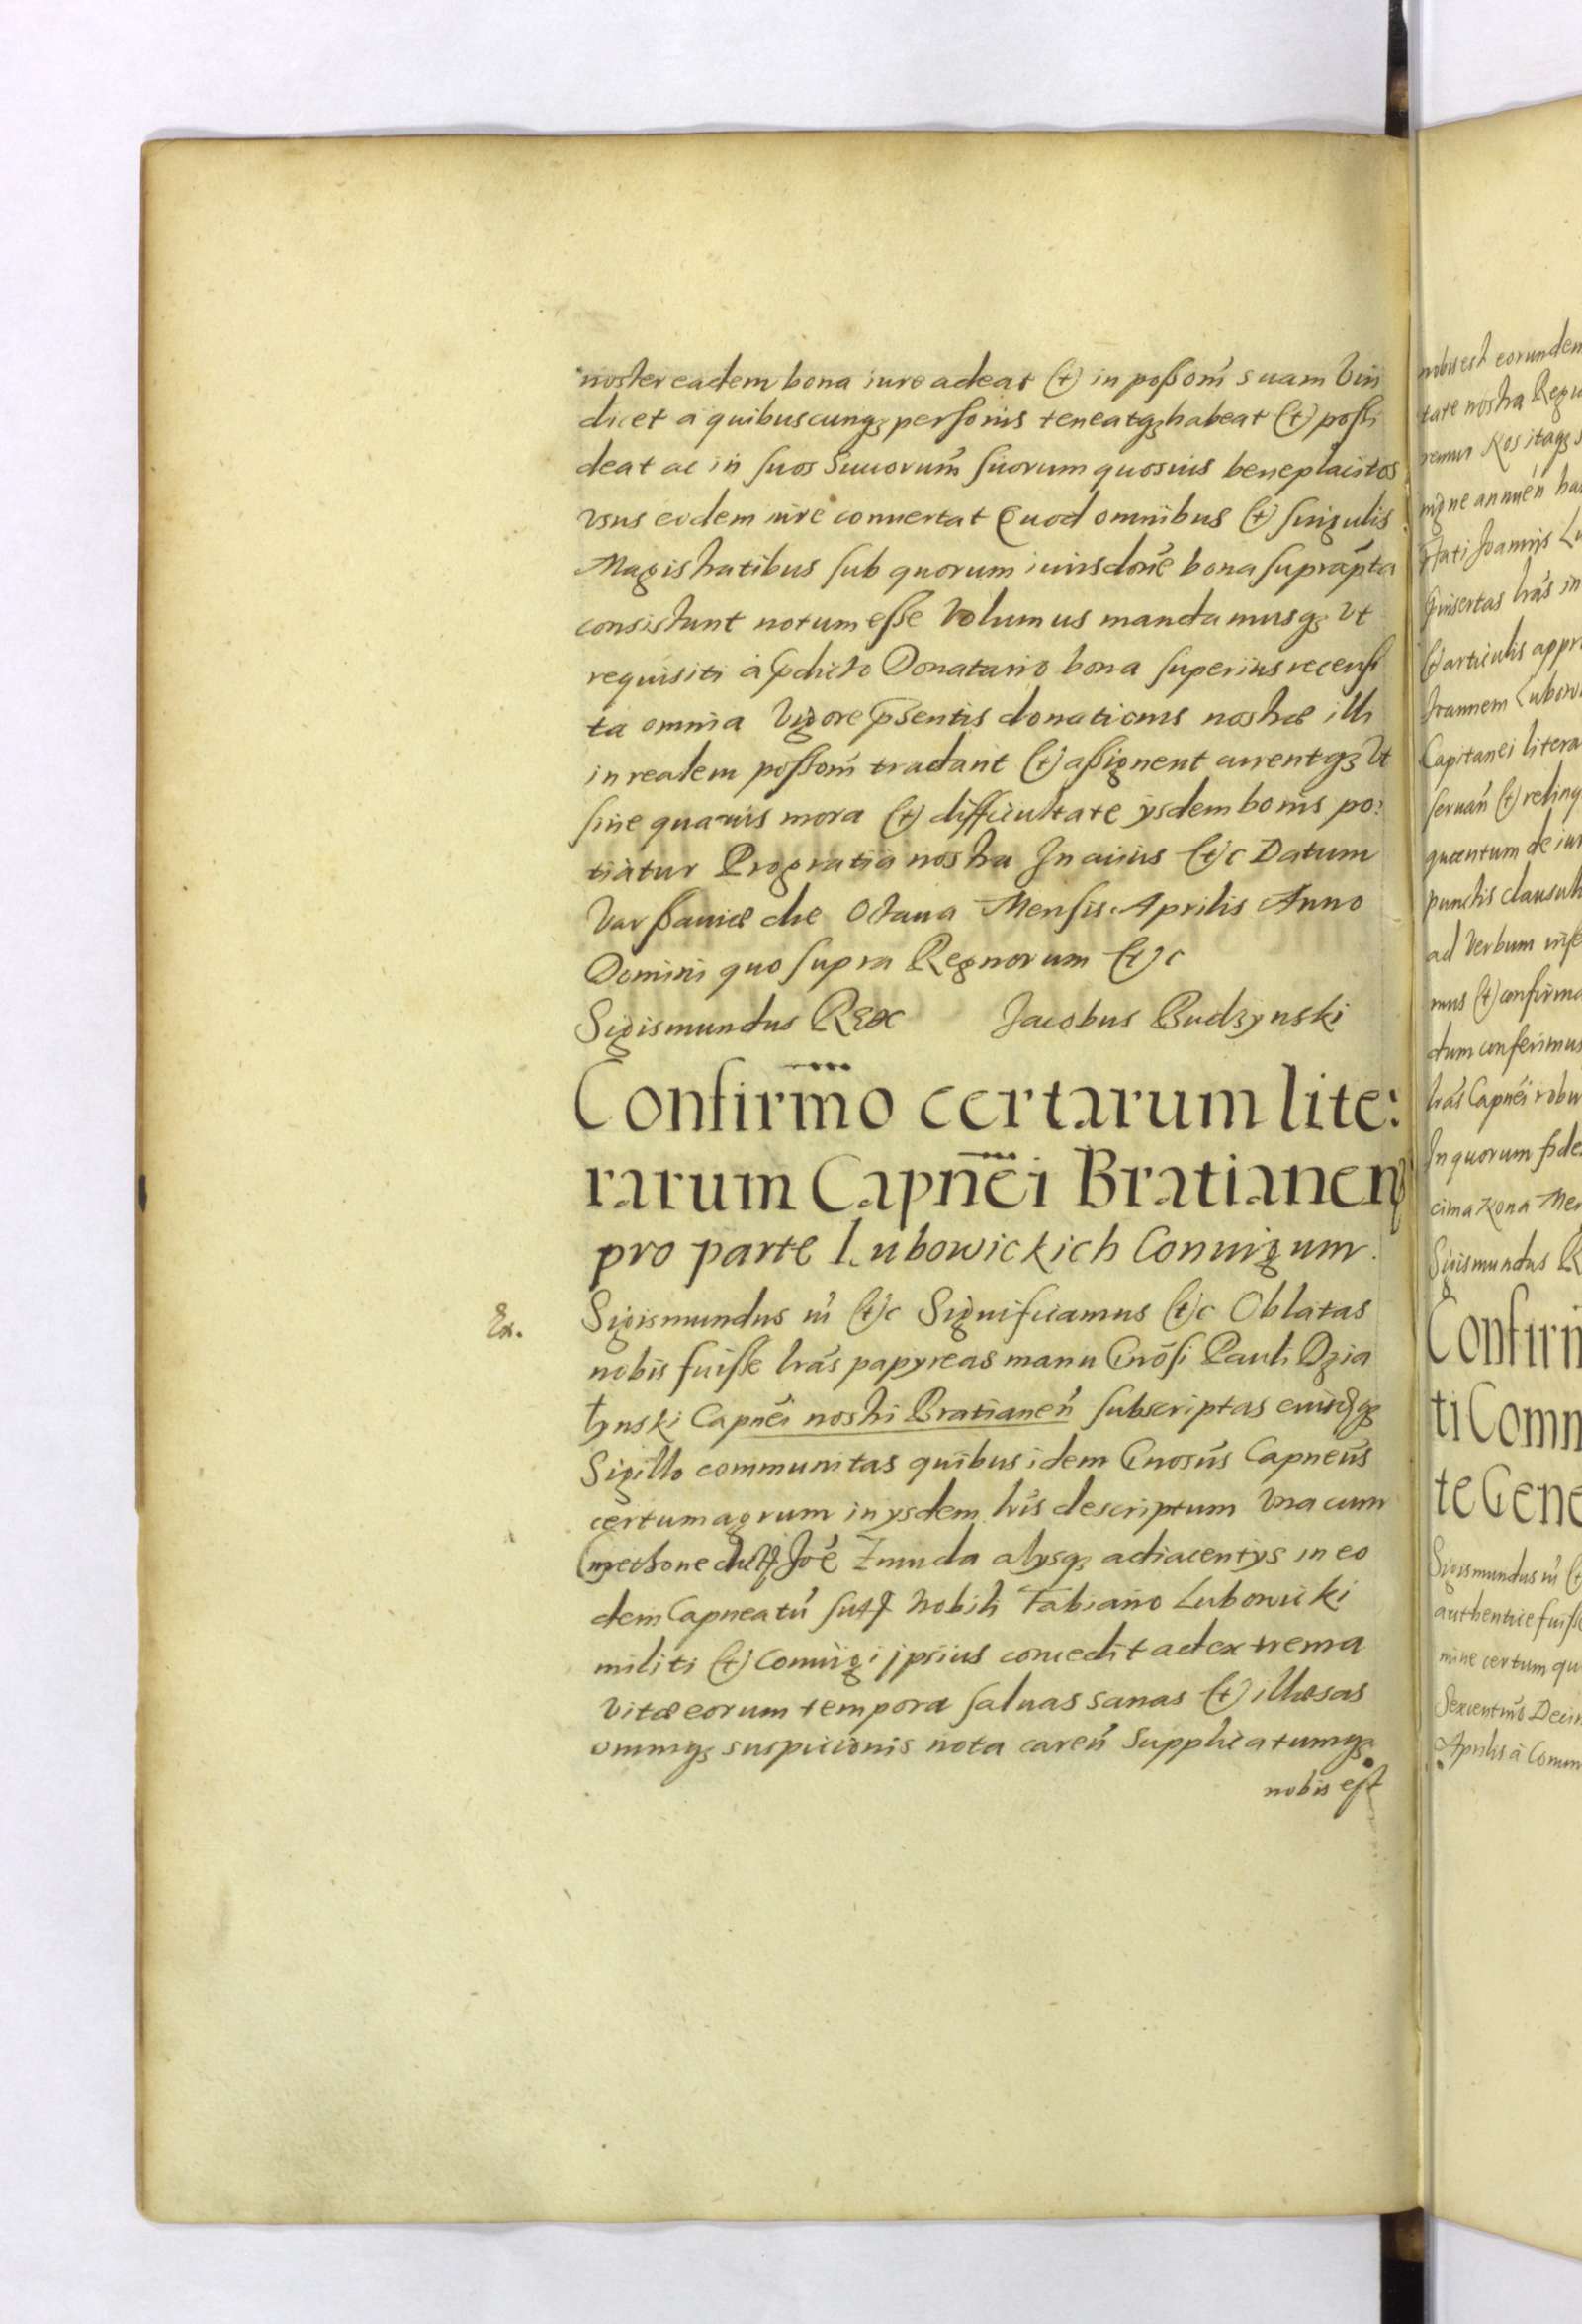 noster eadem bona iure adeat et in poßom̃ suam Vin
dicet a quibuscunqȝ personis teneatqȝ habeat et possi
deat ac in suos Suuorum̃ suorum quosuis beneplacitos
vsus eodem iure conuertat Quod omnibus et singulis
Magistratibus sub quorum iurisdone bona suprap̃ta
consistunt notum esse Volumus mandamusqȝ Vt
requisiti à p̃dicto Donatario bona superius recensi
ta omnia Vigore p̃sentis donationis nostræ illi
in realem possom̃ tradant et aßignent curentqȝ Vt
sine quauis mora et difficultate ysdem bonis po:
tiatur Pro gratia nostra In cuius etc Datum
Varsßauiæ die Octaua Mensis Aprilis Anno
Domini quo supra Regnorum etc
Sigismundus Rex Jacobus Budzynski
Confirm̃o certarum lite:
rarum Capñei Bratianen̄
pro parte Lubowickich Coniugum.
Ex.
Sigismundus iii etc Significamus etc Oblatas
nobis fuisse lrãs papyreas manu Gnõsi Pauli Dzia
łynski Capnẽi nostri Bratianeñ subscriptas eiusdqȝ
Sigillo communitas quibus idem Gnosũs Capneũs
certum agrum in ysdem lrĩs descriptum Vna cum
Cmethone dicto Joẽ Zmuda alysqȝ adiacentys in eo
dem Capneatũ sito Nobili Fabiano Lubowicki
militi et Coniugi ipsius concedit ad extrema
Vitæ eorum tempora saluas sanas et illæsas
omniqȝ suspicionis nota careñ Supplicatumqȝ
nobis est
nobis est eorundem
tate nostra Regia
remur Nos itaqȝ
nigne annueñ
p̃fati Joannis Lu
p̃insertas lrãs in
et articulis appr
Joannem Lubowi
Capitanei litera
seruañ et relinq
quantum de iur
punctis clausuli
ad Verbum inse
mus et confirma
dum conferimus
lrãs Capnẽi robur
In quorum fide
cima Nona Me
Sigismundus R
Confirm
ti Comm
te Gene
Sigismundus iii et
authentice fuisse
mine certum qu
Sexcentmo Decim
Aprilis à Comm